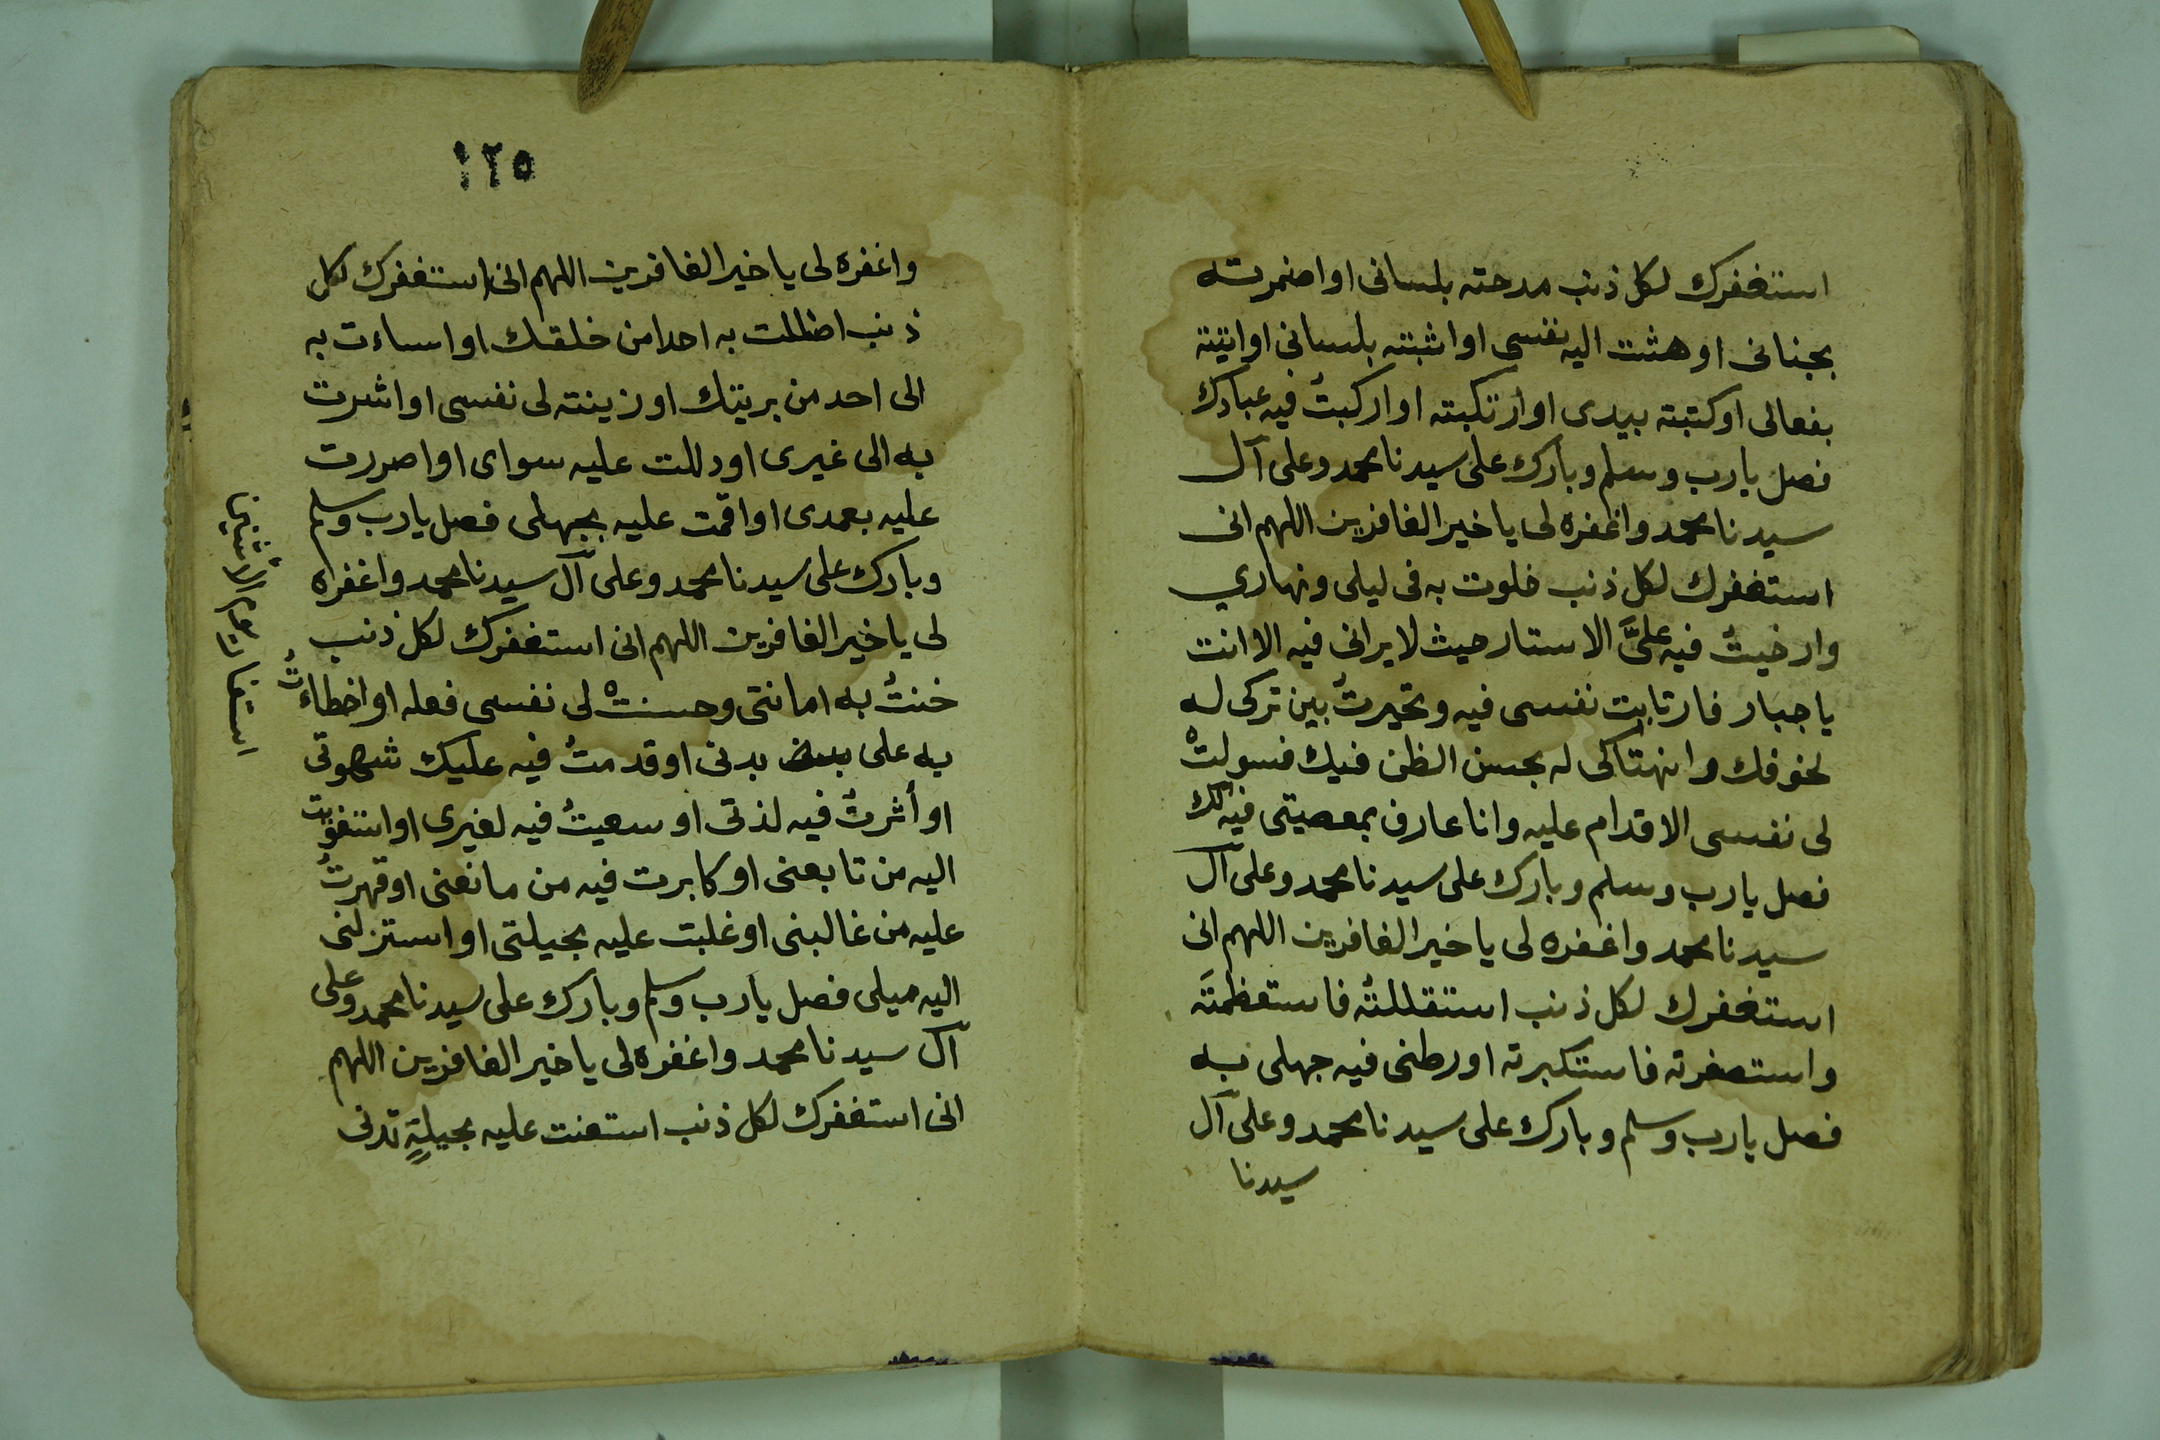 استغفرك لكل ذنب مدحته بلسانى او اضمرته
بجنانى او هشت اليه نفسى او اثبته بلسانى او اتيته
بفعالى او كتبته بيدى او ارتكبته او اركبتُ فيه عبادك
فصل يا رب وسلم وبارك على سيدنا محمد وعلى آل
سيدنا محمد واغفره لى يا خير الغافرين اللهم انى
استغفرك لكل ذنب خلوت به فى ليلى ونهاري
وارخيتُ فيه علىَّ الاستار حيث لا يرانى فيه الا انت
يا جبار فارتابت نفسى فيه وتحيرتُ بين تركى له
لخوفك وانهتاكى له بحسن الظن فيك فسولتْ
لى نفسى الاقدام عليه وانا عارف بمعصيتى فيه لك
فصل يا رب وسلم وبارك على سيدنا محمد وعلى آل
سيدنا محمد واغفره لى يا خير الغافرين اللهم انى
استغفرك لكل ذنب استقللتُه فاستعظمتَه
واستصغرته فاستكبرته اورطنى فيه جهلى به
فصل يا رب وسلم وبارك على سيدنا محمد وعلى آل
سيدنا
١٢٥
واغفره لى يا خير الغافرين اللهم انى استغفرك لكل
ذنب اضللت به احدا من خلقك او اساءت به
الى احد من بريتك او زينته لى نفسى او اشرت
به الى غيرى او دللت عليه سواى او اصررت
عليه بعمدى او اقمت عليه بجهلى فصل يا رب وسلم
وبارك على سيدنا محمد وعلى آل سيدنا محمد واغفره
لى يا خير الغافرين اللهم انى استغفرك لكل ذنب
خنتُ به امانتى وحسنتْ لى نفسى فعله او اخطاءتُ
به على بدنى او قدمتُ فيه عليك شهوتى
او أثرتُ فيه لذتى او سعيتُ فيه لغيرى او استغويت
اليه من تابعنى او كابرت فيه من مانعنى او قهرتُ
عليه من غالبنى او غلبت عليه بحيلتى او استزلنى
اليه ميلى فصل يا رب وسلم وبارك على سيدنا محمد وعلى
آل سيدنا محمد واغفره لى يا خير الغافرين اللهم
انى استغفرك لكل ذنب استعنت عليه بحيلةٍ تدنى
استغفار يوم الأثنين